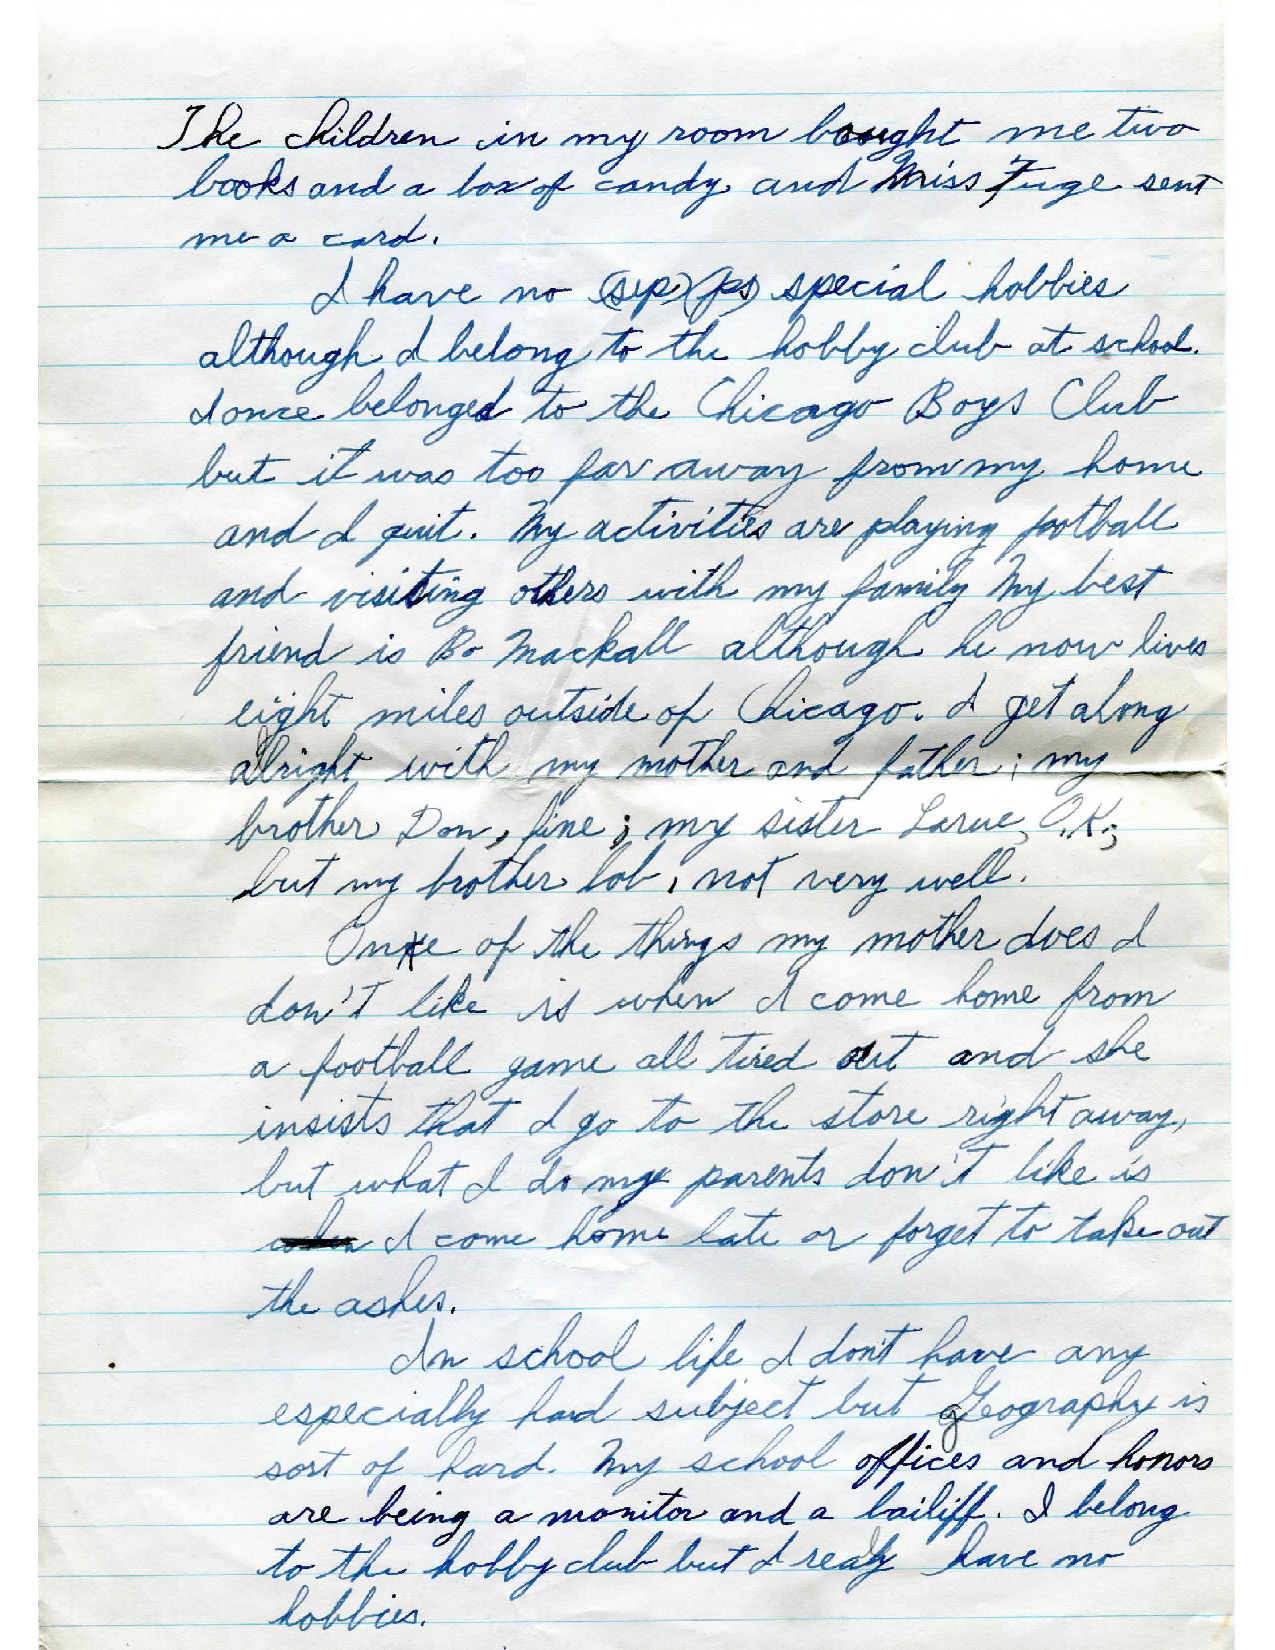 The children in my room bought me two
books and a box of candy and Miss Fuge sent
me a card.
I have no (sip) (ps) special hobbies
although I belong to the hobby club at school.
I once belonged to the Chicago Boys Club
but it was too far away from my home
and I quit. My activities are playing football
and visiting others with my family My best
friend is Bo Mackall although he now lives
eight miles outside of Chicago. I get along
alright with my mother and father; my
brother Don, fine; my sister Larue, O.K.;
but my brother bob, not very well.
One of the things my mother does I
don't like is when I come home from
a football game all tired out and she
insists that I go to the store right away,
but what I do my parents don't like is
when I come home late or forget to take out
the ashes.
In school life I don't have any
especially hard subject but geography is
sort of hard. My school offices and honors
are being a monitor and a bailiff. I belong
to the hobby club but I realy have no
hobbies.